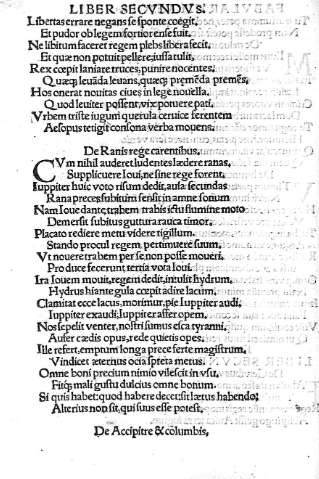 LIBER SECVNDVS.
Libertas errare negans se sponte coegit,
Et pudor ob legem fortior ense fuit.
Ne libitum faceret regem plebs libera fecit,
Et quæ non potuit pellere, iussa tulit,
Rex cœpit laniare truces, punire nocentes,
Quæq; leuãda leuans, quæq; premẽda premẽs,
Hos onerat nouitas ciues in lege nouella.
Quod leuiter possent, vix potuere pati,
Vrbem triste iugum querula ceruice ferentem
Aesopus tetigit consona verba mouens.
De Ranis rege carentibus,
CVm nihil auderet ludentes lædere ranas,
Supplicuere Ioui, ne sine rege forent,
Iuppiter huic voto risum dedit, ausa secundas
Rana preces subitum sensit in amne sonum
Nam Ioue dante, trabem trabis ictu flumine moto
Demersit subitus guttura rauca timor,
Placato rediere metu videre tigillum.
Stando procul regem pertimuere suum,
Vt nouere trabem per se non posse moueri.
Pro duce fecerunt tertia vota Ioui.
Ira Iouem mouit, regem dedit, intulit hydrum,
Hydrus hiante gula cœpit adire lacum,
Clamitat ecce lacus, morimur, pie Iuppiter audi,
Iuppiter exaudi, Iuppiter affer opem,
Nos sepelit venter, nostri sumus esca tyranni,
Aufer cædis opus, rede quietis opes,
Ille refert, emptum longa prece ferte magistrum,
Vindicet æternus ocia spreta metus.
Omne boni precium nimio vilescit in vsu,
Fitq; mali gustu dulcius omne bonum.
Si quis habet quod habere decet: sit lætus habendo:
Alterius non sit, qui suus esse potest,
De Accipitre & columbis,